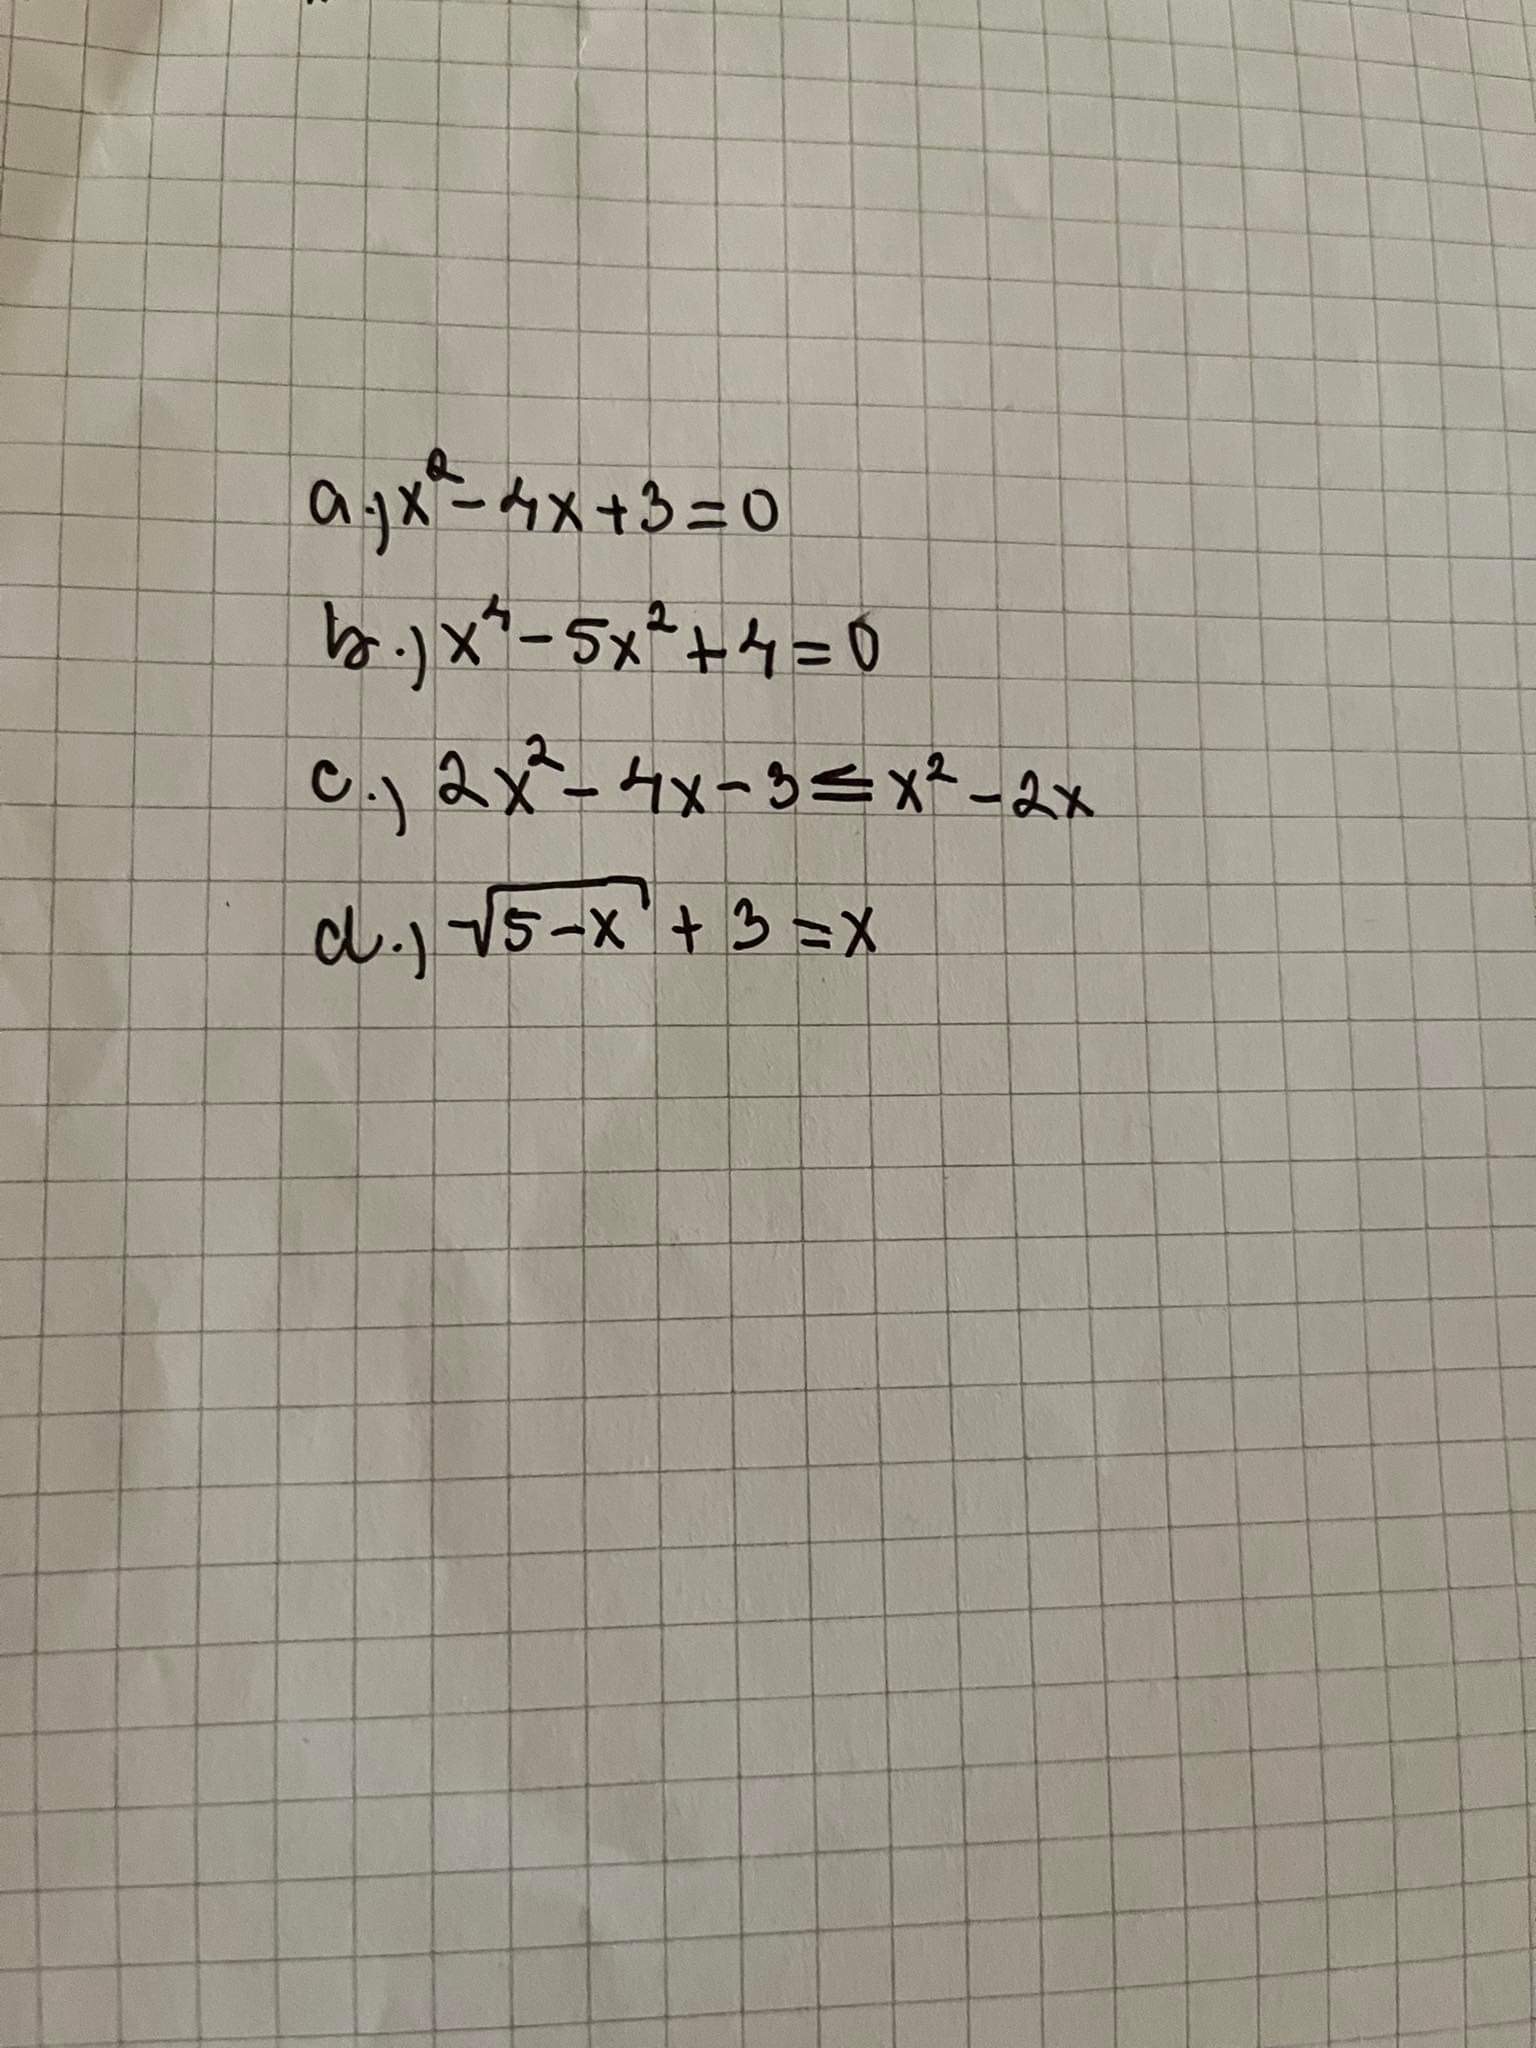 a.) x² - 4x + 3 = 0
b.) x⁴ - 5x² + 4 = 0
c.) 2x² - 4x - 3 ≤ x² - 2x
d.) √(5-x) + 3 = x